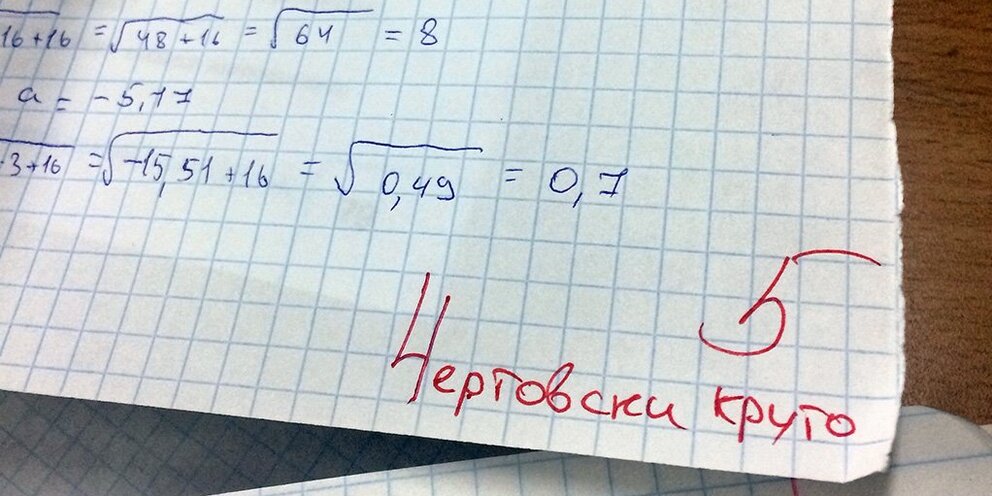 16+16 = √48+16 = √64 = 8
a = -5,17
·3+16 = √-15,51+16 = √0,49 = 0,7
5
Чертовски круто